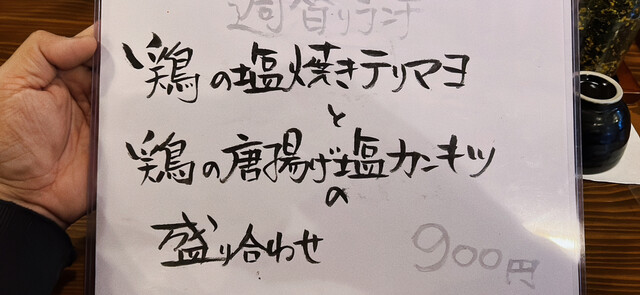 週替りランチ
鶏の塩焼きテリマヨ
と
鶏の唐揚げ塩カンキツ
の
盛り合わせ
900円